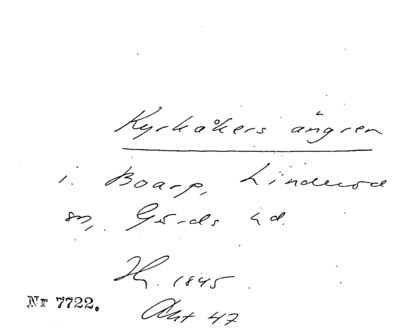 Kyrkåkers ängren
i Boarp, Linderöd
sn, Gärds hd.
Hz. 1845
Akt 47
Nr 7722.